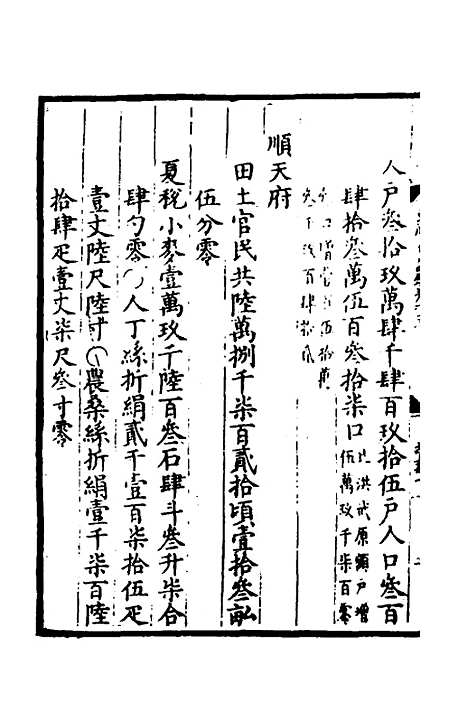 人戶叄拾玖萬肆千肆百玖拾伍戶人口叄百
肆拾叄萬伍百叄拾柒口比洪武原額戶增
伍萬玖千柒百零
順天府
田土官民共陸萬捌千柒百貳拾頃壹拾叄畝
伍分零
夏稅小麥壹萬玖千陸百叄石肆斗叄升柒合
肆勺零○人丁絲折絹貳千壹百柒拾伍疋
壹丈陸尺陸寸○農桑絲折絹壹千柒百陸
拾肆疋壹丈柒尺叄寸零